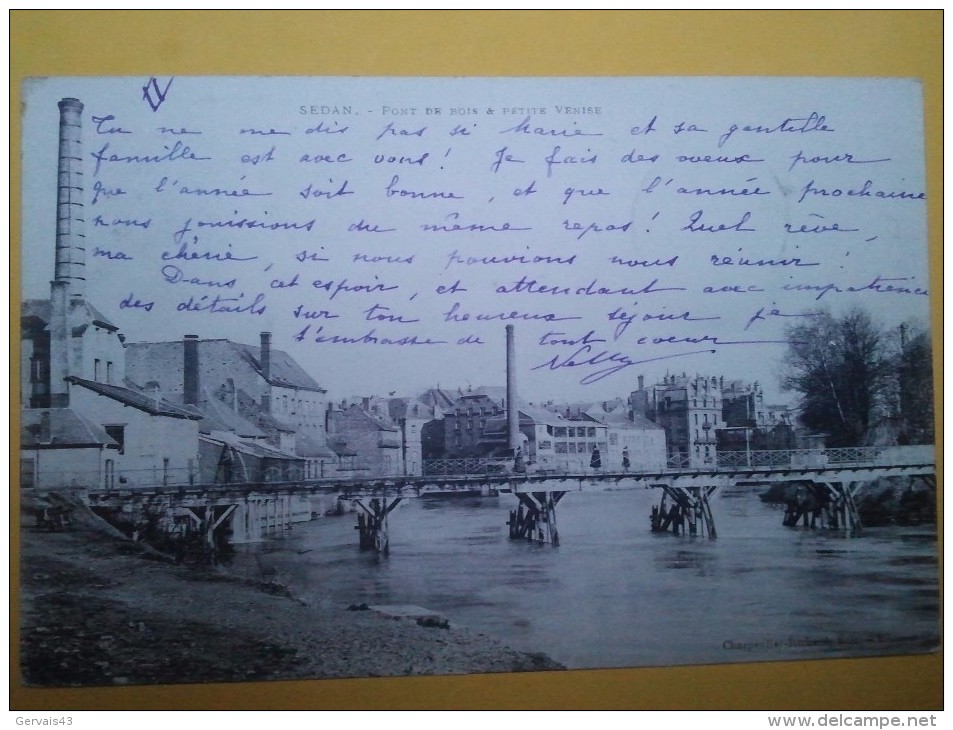 SEDAN. - PONT DE BOIS & PETITE VENISE
Tu ne me dis pas si Marie et sa gentille
famille est avec vous! Je fais des vœux pour
que l'année soit bonne, et que l'année prochaine
nous jouissions du même repos! Quel rêve,
ma chérie, si nous pouvions nous réunir!
Dans cet espoir, et attendant avec impatience
des détails sur ton heureux séjour je
t'embrasse de tout coeur
Nelly
Charpentier
Gervais43
www.delcampe.net